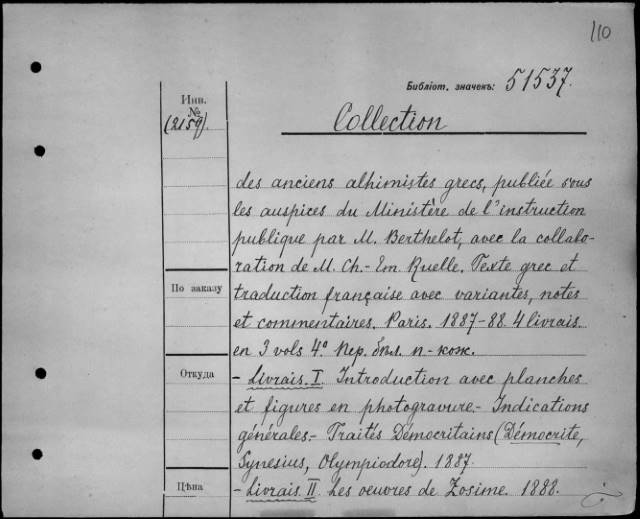 110
Библіот. значекъ: 51537.
Инв.
№
(2159)
Collection
des anciens alhimistes grecs, publiée sous
les auspices du Ministère de l'instruction
publique par M. Berthelot, avec la collabo-
ration de M. Ch.- Em. Ruelle. Texte grec et
По заказу
traduction française avec variantes, notes
et commentaires. Paris. 1887-88. 4 livrais.
en 3 vols 4° Пер. бѣл. п-кож.
Откуда
- Livrais. I. Introduction avec planches
et figures en photogravure.- Indications
générales.- Traités Démocritains (Démocrite,
Synesius, Olympiodore). 1887.
Цѣна
- Livrais. II. Les oeuvres de Zosime. 1888.